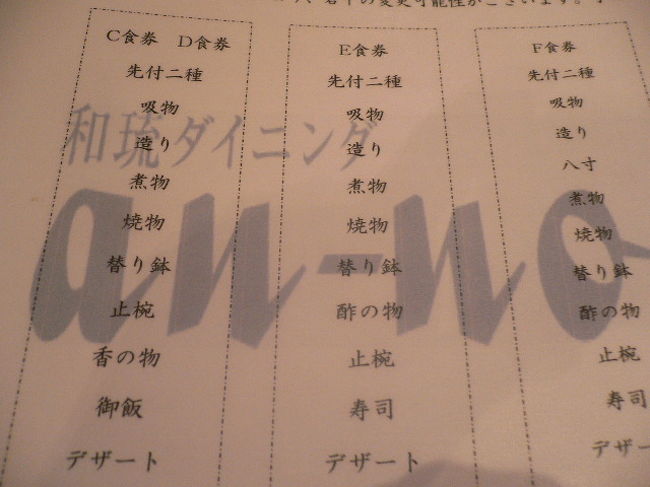 若干の変更可能性がございます。
C食券 D食券
先付二種
吸物
造り
煮物
焼物
替り鉢
止椀
香の物
御飯
デザート
E食券
先付二種
吸物
造り
煮物
焼物
替り鉢
酢の物
止椀
寿司
デザート
F食券
先付二種
吸物
造り
八寸
煮物
焼物
替り鉢
酢の物
止椀
寿司
デザー
和琉ダイニング
an-no